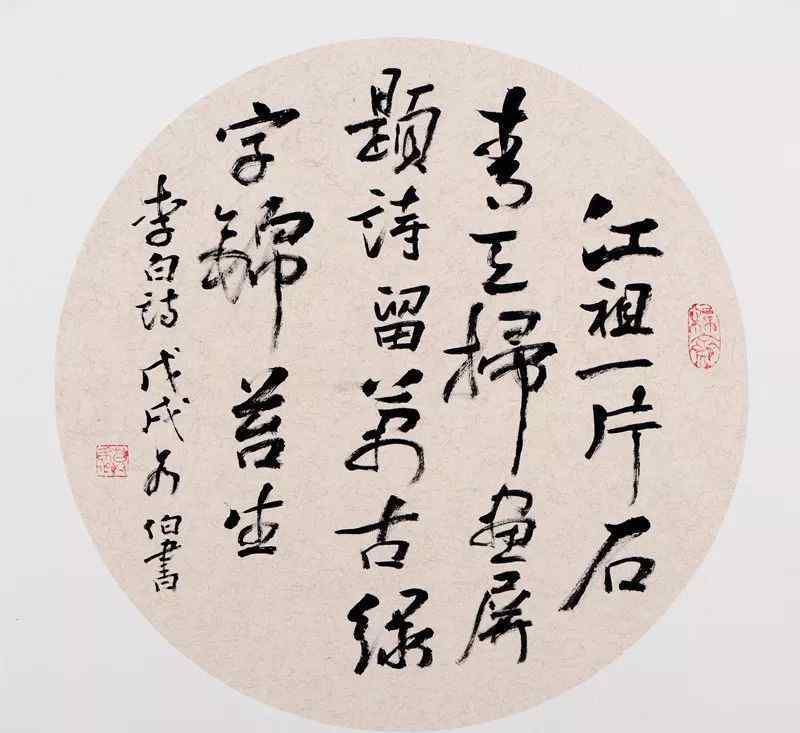 江祖一片石
青天掃画屏
題詩留萬古緑
字錦苔生
李白詩戊戌 伯書